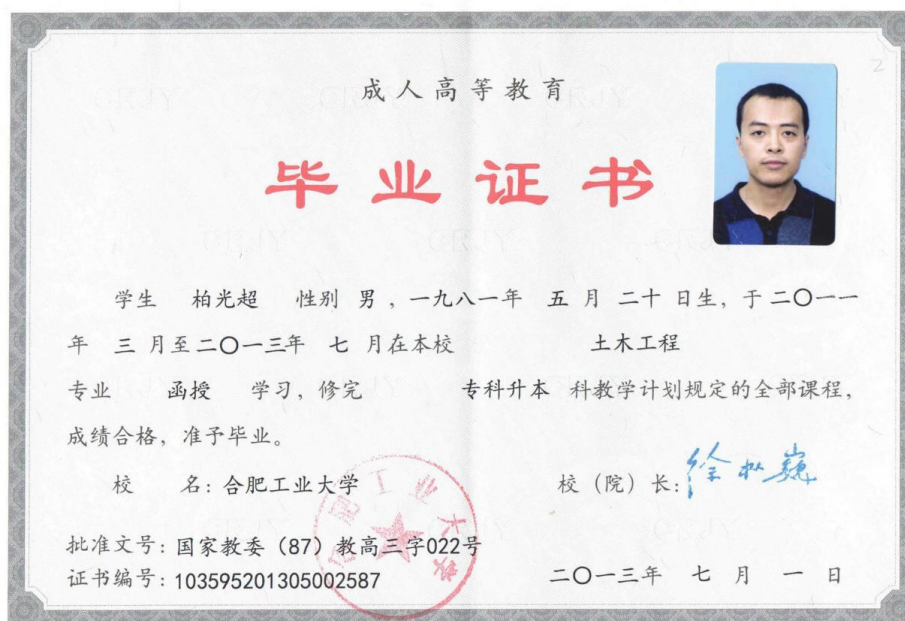 成人高等教育
毕业证书
学生 柏光超 性别 男,一九八一年 五 月 二十 日生,于二〇一一
年 三 月至二〇一三年 七 月在本校 土木工程
专业 函授 学习,修完 专科升本 科教学计划规定的全部课程,
成绩合格,准予毕业。
校 名:合肥工业大学 校(院)长:徐枞巍
批准文号:国家教委(87)教高三字022号
证书编号:103595201305002587 二〇一三年 七 月 一 日
合肥工业大学
2